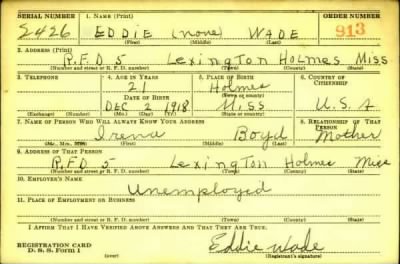 SERIAL NUMBER 1. NAME (Print) ORDER NUMBER
2426 EDDIE (none) WADE 913
(First) (Middle) (Last)
2. ADDRESS (Print)
R.F.D 5 Lexington Holmes Miss
(Number and street or R. F. D. number) (Town) (County) (State)
3. TELEPHONE 4. AGE IN YEARS 5. PLACE OF BIRTH 6. COUNTRY OF CITIZENSHIP
21 Holmes
DATE OF BIRTH (Town or county)
DEC 2 1918 Miss U.S.A
(Exchange) (Number) (Mo.) (Day) (Yr.) (State or country)
7. NAME OF PERSON WHO WILL ALWAYS KNOW YOUR ADDRESS 8. RELATIONSHIP OF THAT PERSON
Irena Boyd Mother
(Mr., Mrs., Miss) (First) (Middle) (Last)
9. ADDRESS OF THAT PERSON
R.F.D 5 Lexington Holmes Miss
(Number and street or R. F. D. number) (Town) (County) (State)
10. EMPLOYER'S NAME
Unemployed
11. PLACE OF EMPLOYMENT OR BUSINESS
(Number and street or R. F. D. number) (Town) (County) (State)
I AFFIRM THAT I HAVE VERIFIED ABOVE ANSWERS AND THAT THEY ARE TRUE.
REGISTRATION CARD Eddie Wade
D. S. S. Form 1 (over) (Registrant's signature)